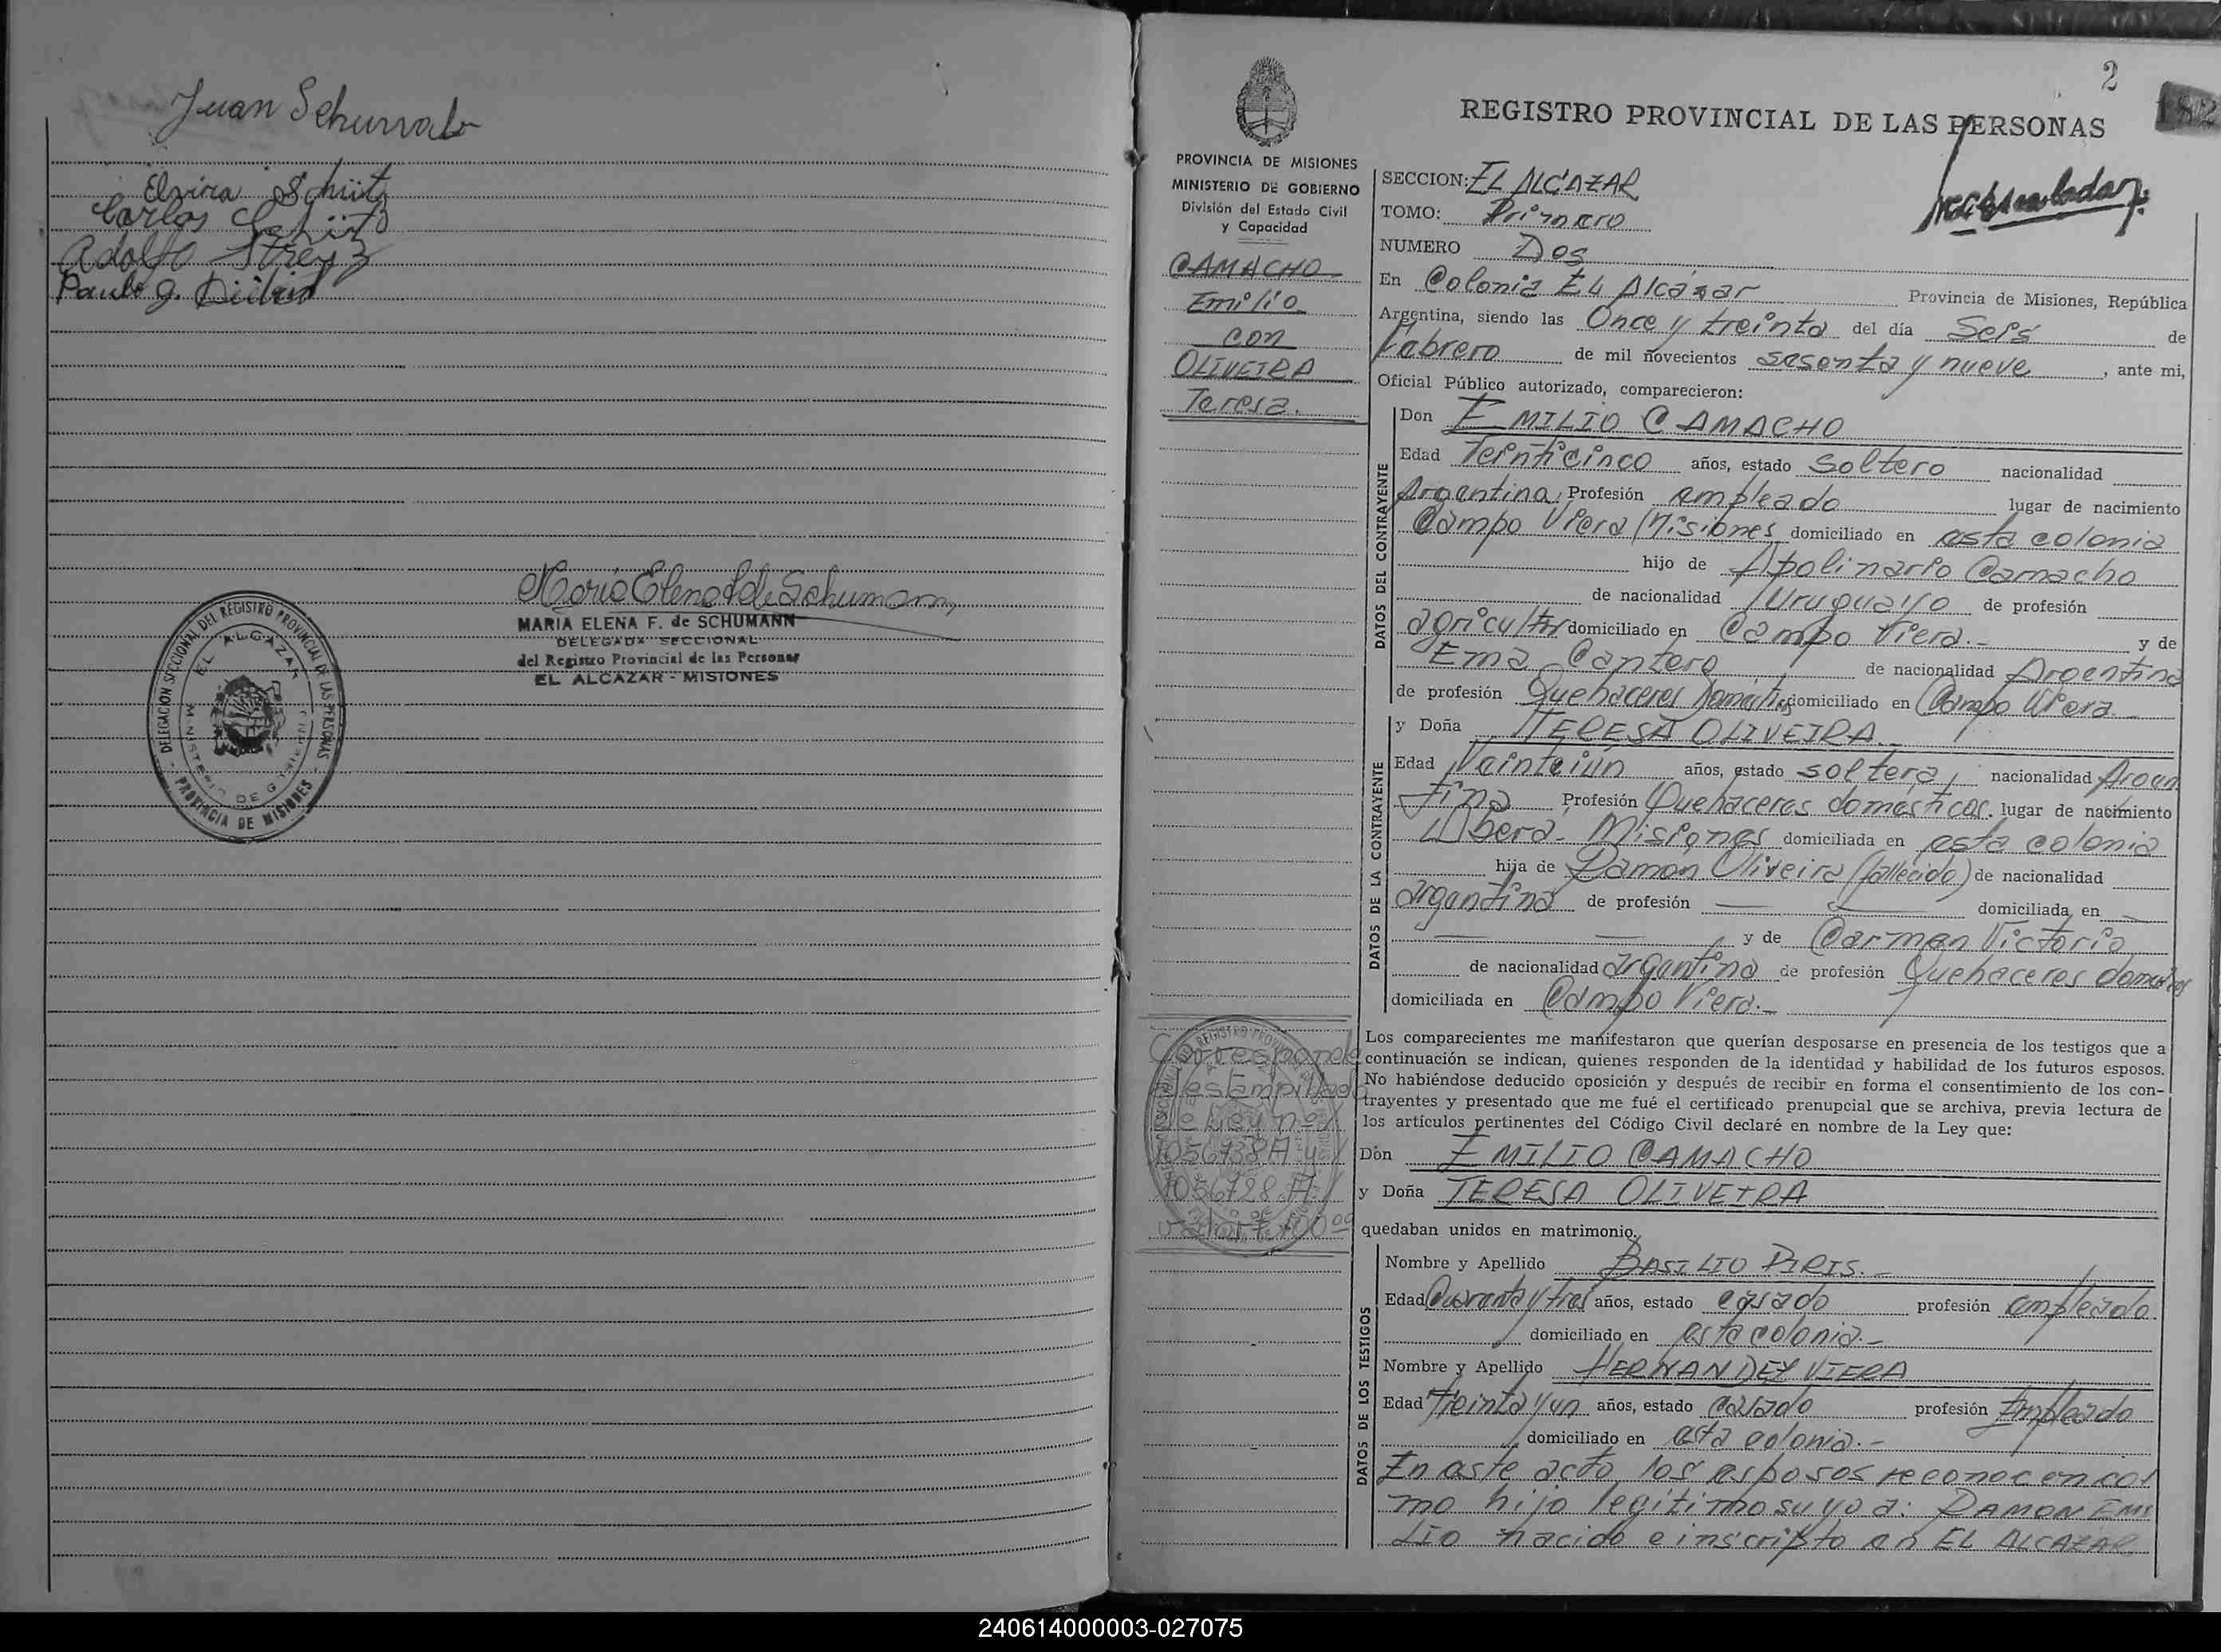 Juan Schurrab
Elvira Schütz
Carlos Schütz
Adolfo Streyz
Paulo g.
Maria Elena F de Schumann
MARIA ELENA F. de SCHUMANN
DELEGADA SECCIONAL
del Registro Provincial de las Personas
EL ALCAZAR - MISIONES
DELEGACION SECCIONAL DEL REGISTRO PROVINCIAL DE LAS PERSONAS
- PROVINCIA DE MISIONES -
EL ALCAZAR
MINISTERIO DE GOBIERNO
2
182
REGISTRO PROVINCIAL DE LAS PERSONAS
PROVINCIA DE MISIONES
MINISTERIO DE GOBIERNO
División del Estado Civil
y Capacidad
CAMACHO
Emilio
con
OLIVEIRA
Teresa.
SECCION: EL ALCAZAR
TOMO: Primero
NUMERO Dos
En Colonia EL Alcázar Provincia de Misiones, República
Argentina, siendo las Once y treinta del día Seis de
Febrero de mil novecientos sesenta y nueve, ante mi,
Oficial Público autorizado, comparecieron:
DATOS DEL CONTRAYENTE
Don EMILIO CAMACHO
Edad Veinticinco años, estado Soltero nacionalidad
Argentina, Profesión empleado lugar de nacimiento
Campo Viera (Misiones domiciliado en esta colonia
hijo de Apolinario Camacho
de nacionalidad Uruguayo de profesión
agricultor domiciliado en Campo Viera.- y de
Ema Cantero de nacionalidad Argentina
de profesión Quehaceres Domésticos domiciliado en Campo Viera.
DATOS DE LA CONTRAYENTE
y Doña TERESA OLIVEIRA.
Edad Veintiún años, estado soltera, nacionalidad Argen
tina Profesión Quehaceres domésticos. lugar de nacimiento
Oberá - Misiones domiciliada en esta colonia
hija de Ramón Oliveira (fallecido) de nacionalidad
argentina de profesión — domiciliada en —
— — y de Carmen Victorio
de nacionalidad argentina de profesión Quehaceres domésticos
domiciliada en Campo Viera.-
Los comparecientes me manifestaron que querían desposarse en presencia de los testigos que a
continuación se indican, quienes responden de la identidad y habilidad de los futuros esposos.
No habiéndose deducido oposición y después de recibir en forma el consentimiento de los con-
trayentes y presentado que me fué el certificado prenupcial que se archiva, previa lectura de
los artículos pertinentes del Código Civil declaré en nombre de la Ley que:
Corresponde
estampillado
de Ley nº
1056738A y
1056728A
valor $ 100.00
Don EMILIO CAMACHO
y Doña TERESA OLIVEIRA
quedaban unidos en matrimonio.
DATOS DE LOS TESTIGOS
Nombre y Apellido BASILIO PIRIS.-
Edad Cuarenta y tres años, estado casado profesión empleado
domiciliado en esta colonia.-
Nombre y Apellido HERNANDEZ VIERA
Edad treinta y un años, estado casado profesión Empleado
domiciliado en esta colonia.-
En este acto, los esposos reconocen co
mo hijo legitimo suyo a: RAMON EMI
LIO nacido e inscripto en EL ALCAZAR
240614000003-027075